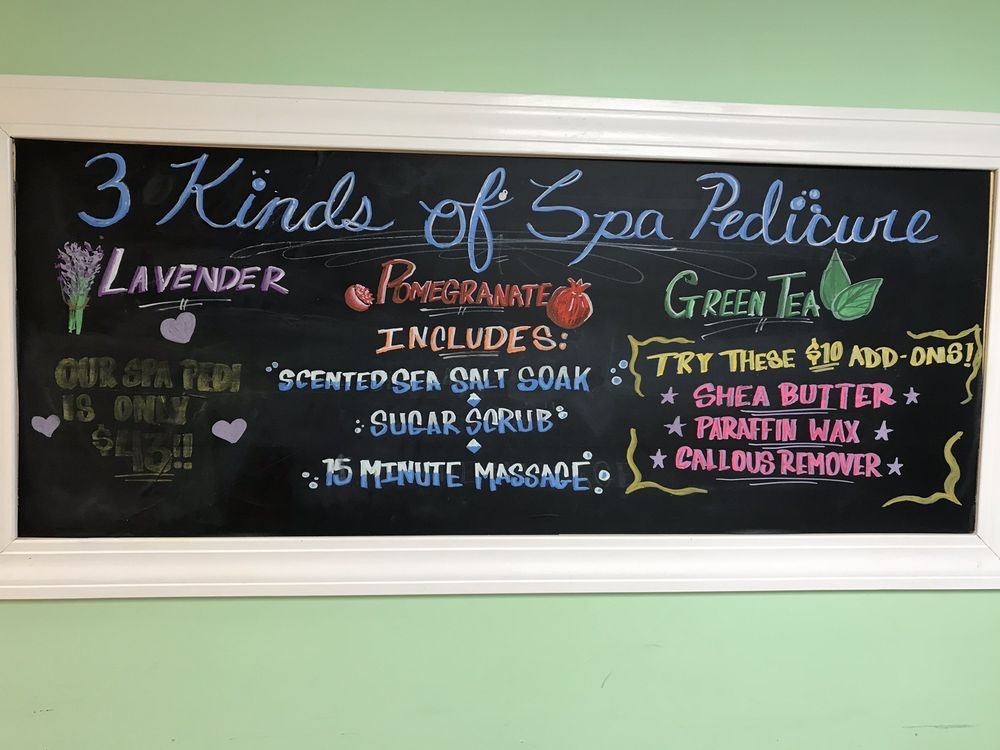 3 Kinds of Spa Pedicure
LAVENDER
POMEGRANATE
GREEN TEA
OUR SPA PEDI
IS ONLY
$43!!
INCLUDES:
SCENTED SEA SALT SOAK
SUGAR SCRUB
15 MINUTE MASSAGE
TRY THESE $10 ADD-ONS!
SHEA BUTTER
PARAFFIN WAX
CALLOUS REMOVER